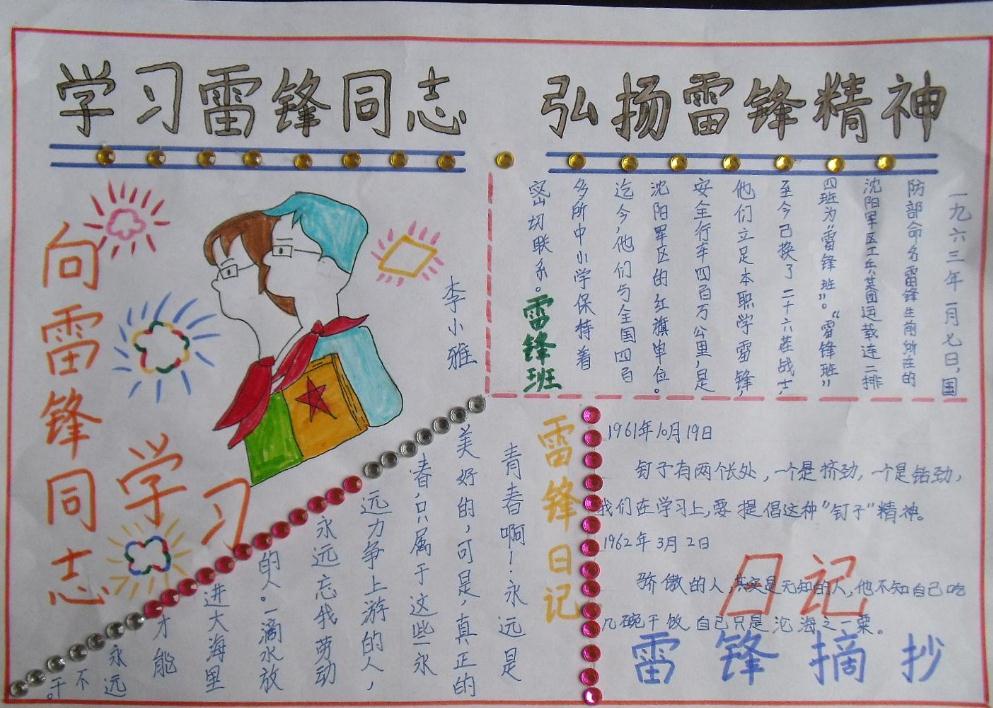 学习雷锋同志
弘扬雷锋精神
向雷锋同志
学习
李小雅
一九六三年一月七日,国
防部命名雷锋生前所在的
沈阳军区工兵某团运载连二排
四班为“雷锋班”。“雷锋班”
至今已换了二十六茬战士,
他们立足本职学雷锋,
安全行车四百万公里,是
沈阳军区的红旗单位。
迄今,他们与全国四百
多所中小学保持着
密切联系。
雷锋班
青春啊!永远是
美好的,可是,真正的
青春,只属于这些永
远力争上游的人,
永远忘我劳动
的人。一滴水放
进大海里
才能
永远
不
干。
雷锋日记
1961年10月19日
钉子有两个长处,一个是挤劲,一个是钻劲,
我们在学习上,要提倡这种“钉子”精神。
1962年3月2日
骄傲的人,其实是无知的人,他不知自己吃
几碗干饭,自己只是沧海之一粟。
日记
雷锋摘抄